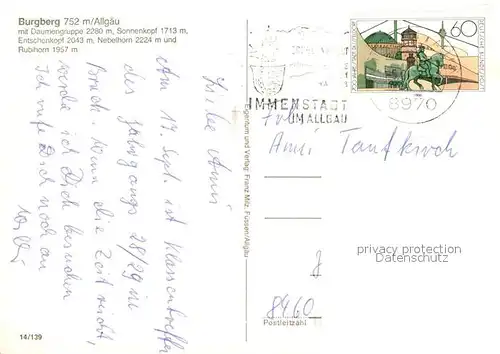 Burgberg 752 m/Allgäu
mit Daumengruppe 2280 m, Sonnenkopf 1713 m,
Entschenkopf 2043 m, Nebelhorn 2224 m und
Rubihorn 1957 m
Liebe Anni
Am 17. Sept. ist Klassentreffen
des Jahrgangs 28/29 in
Wenn die Zeit reicht,
werde ich Dich besuchen
Ich rufe Dich noch an
Willi
14/139
Eigentum und Verlag Franz Milz, Füssen/Allgäu
IMMENSTADT
IM ALLGÄU
8970
60
DEUTSCHE BUNDESPOST
Frau
Anni
8460
Postleitzahl
privacy protection
Datenschutz